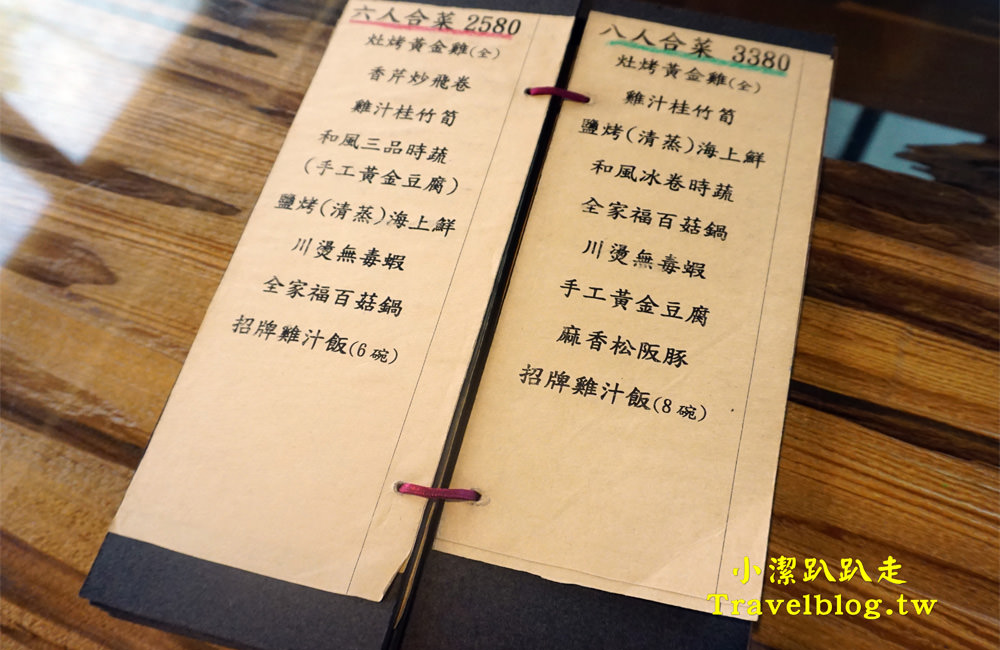 六人合菜 2580
灶烤黃金雞(全)
香芹炒飛卷
雞汁桂竹筍
和風三品時蔬
(手工黃金豆腐)
鹽烤(清蒸)海上鮮
川燙無毒蝦
全家福百菇鍋
招牌雞汁飯(6 碗)
八人合菜 3380
灶烤黃金雞(全)
雞汁桂竹筍
鹽烤(清蒸)海上鮮
和風冰卷時蔬
全家福百菇鍋
川燙無毒蝦
手工黃金豆腐
麻香松阪豚
招牌雞汁飯(8 碗)
小潔趴趴走
Travelblog.tw